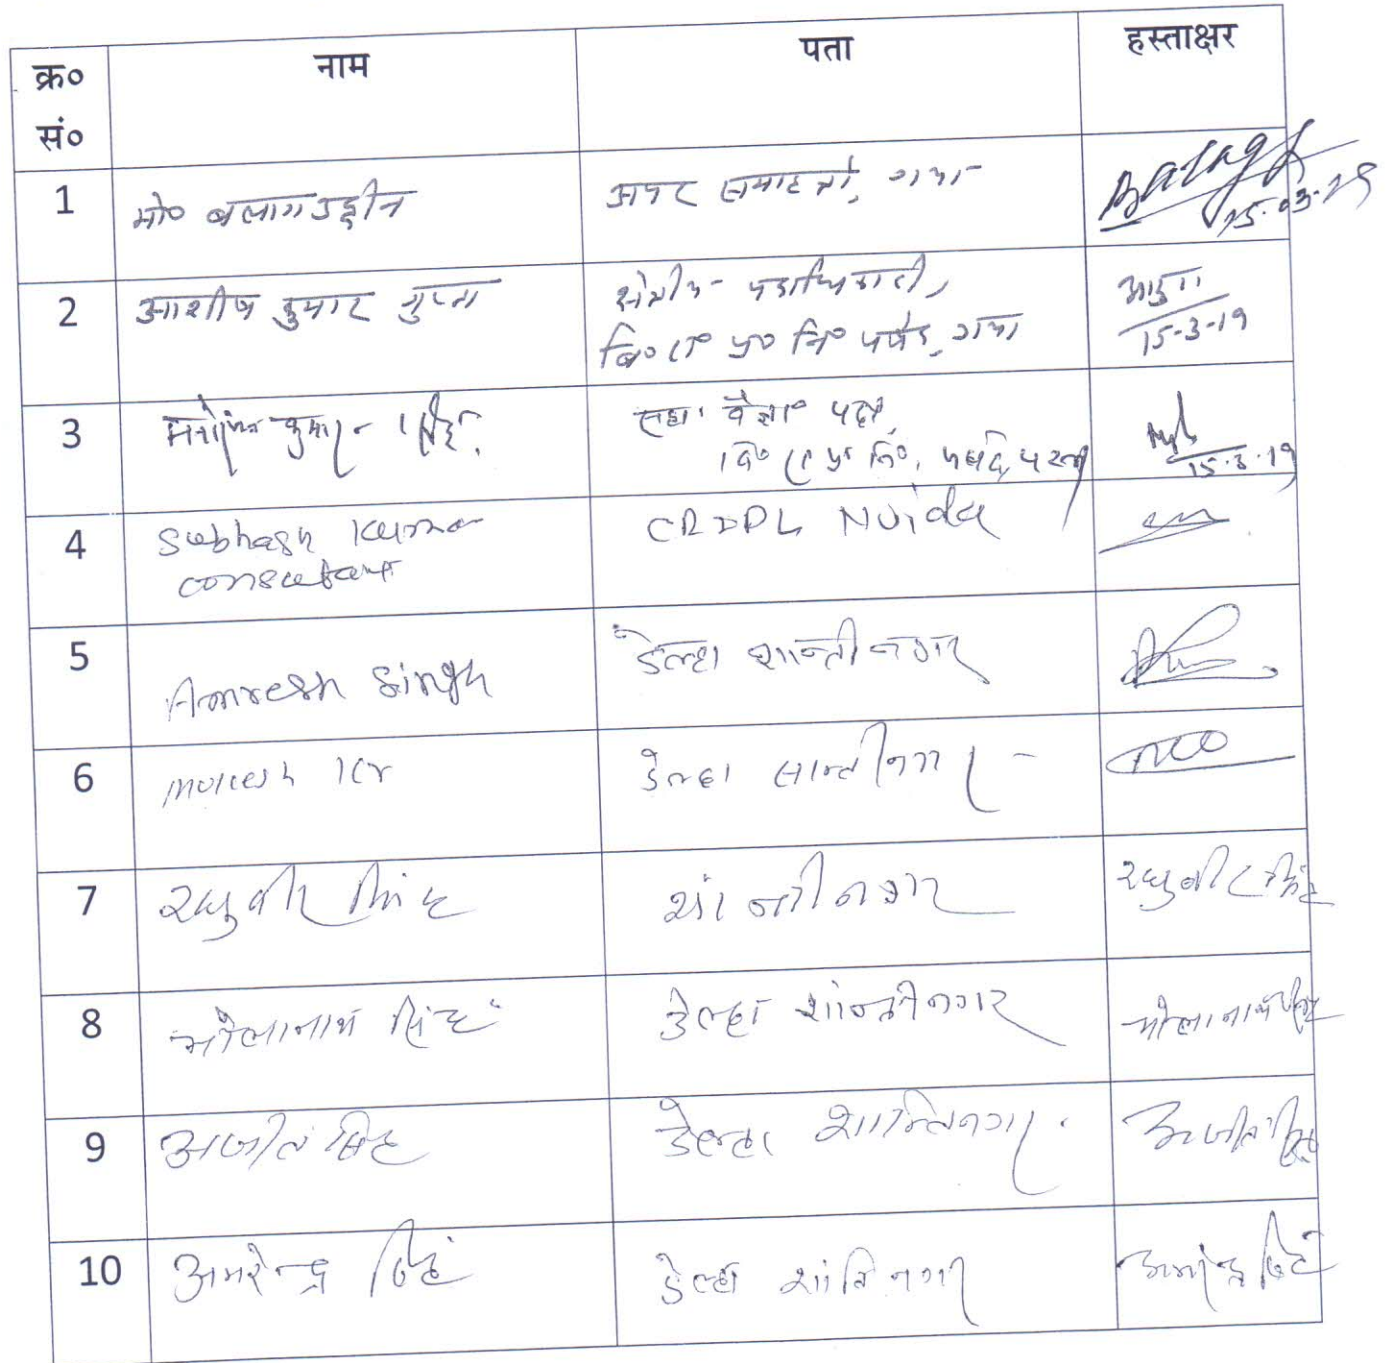 क्र०
सं०
नाम
पता
हस्ताक्षर
1
मो० बलागउद्दीन
अपर समाहर्ता, गया
15.03.19
2
आशीष कुमार गुप्ता
क्षेत्रीय पदाधिकारी,
बि० रा० प्र० नि० पर्षद, गया
15-3-19
3
कुमार सिंह
सहा. वैज्ञा० पदा,
बि० रा प्र० नि०, पर्षद, पटना
15.3.19
4
Subhash Kumar
consultant
CRDPL Noida
5
Amresh Singh
डेल्हा शान्तीनगर
6
Mukesh Kr
डेल्हा सान्तीनगर
7
रघुवीर सिंह
शांन्तीनगर
रघुवीर सिंह
8
भोलानाथ सिंह
डेल्हा शांन्तीनगर
भोलानाथ सिंह
9
अजीत सिंह
डेल्हा शान्तिनगर
अजीत सिंह
10
अमरेन्द्र सिंह
डेल्हा शांतिनगर
अमरेन्द्र सिंह